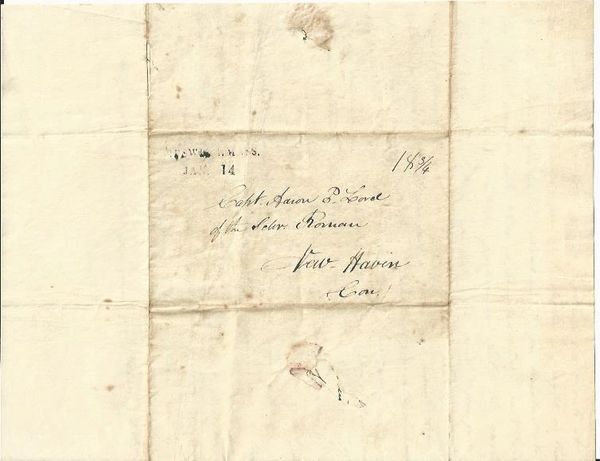 MASS.
JAN 14
18 3/4
Capt. Aaron P. Lord
of the Schr Roman
New-Haven
Con.